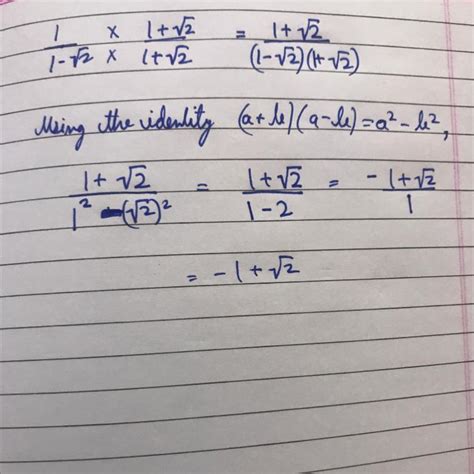 1/(1-√2) × (1+√2)/(1+√2) = (1+√2)/((1-√2)(1+√2))
Using the identity (a+b)(a-b)=a²-b²,
(1+√2)/(1²-(√2)²) = (1+√2)/(1-2) = (-1+√2)/1
= -1+√2